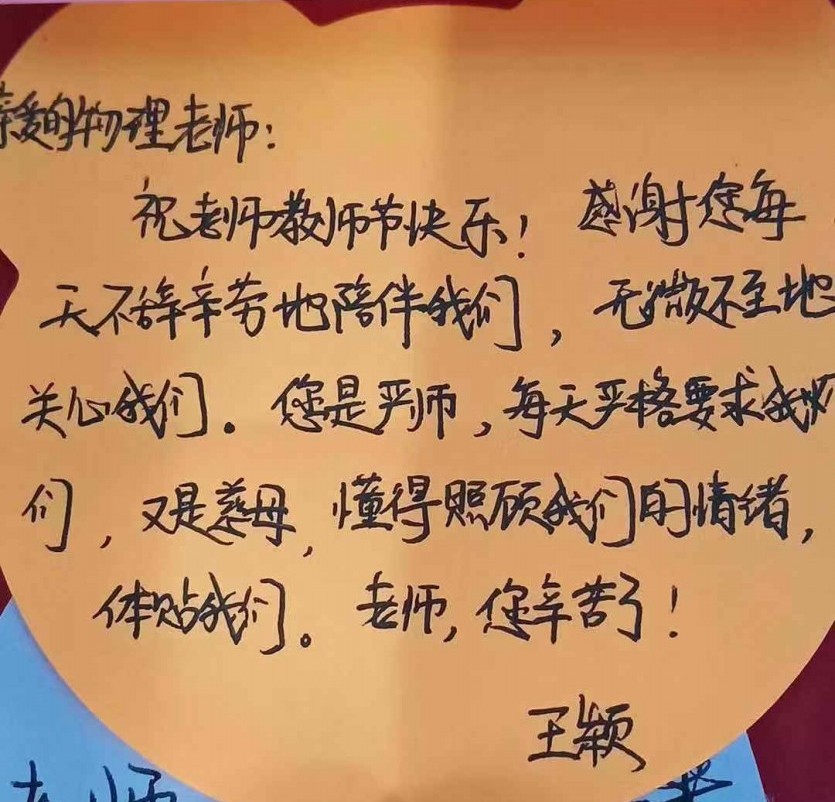 亲爱的物理老师:
祝老师教师节快乐! 感谢您每
天不辞辛劳地陪伴我们,无微不至地
关心我们。您是严师,每天严格要求我
们,又是慈母,懂得照顾我们的情绪,
体贴我们。老师,您辛苦了!
王颖
老师